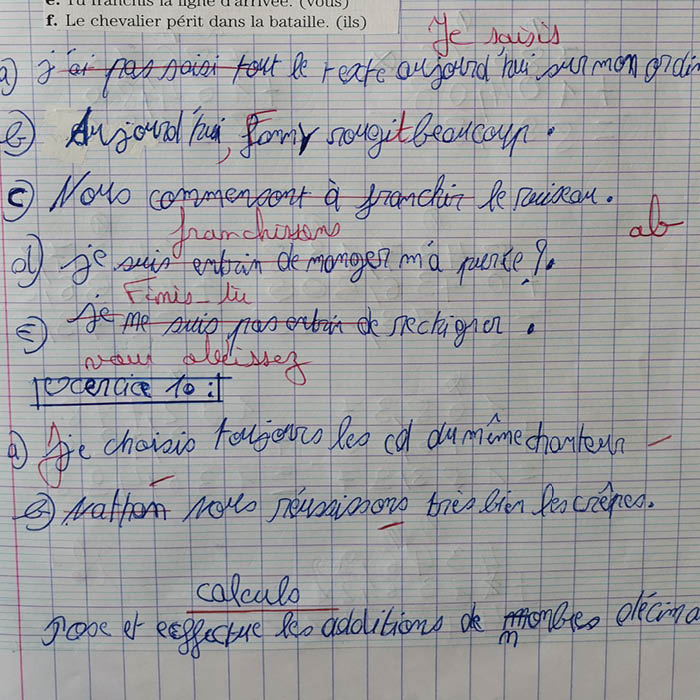 e. Tu franchis la ligne d'arrivée. (vous)
f. Le chevalier périt dans la bataille. (ils)
Je saisis
a) j'ai pas saisi tout le texte aujourd'hui sur mon ordin
b) Aujourd'hui, Fanny rougit beaucoup.
c) Nous commensont à franchir le ruiseau.
franchissons
ab
d) je suis entrin de manger m'a purée ?.
Finis-tu
e) je me suis pas entrin de rechigner.
vous obéissez
exercice 10 :
a) je choisis toujours les cd du même chanteur
b) Nathan nous réussissons très bien les crêpes.
calculs
pose et effectue les additions de nombres décima